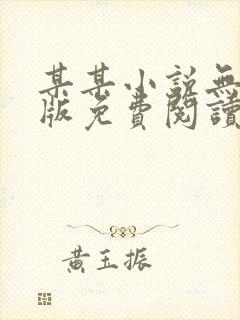 某某小说無
版免費閱讀
黄玉振